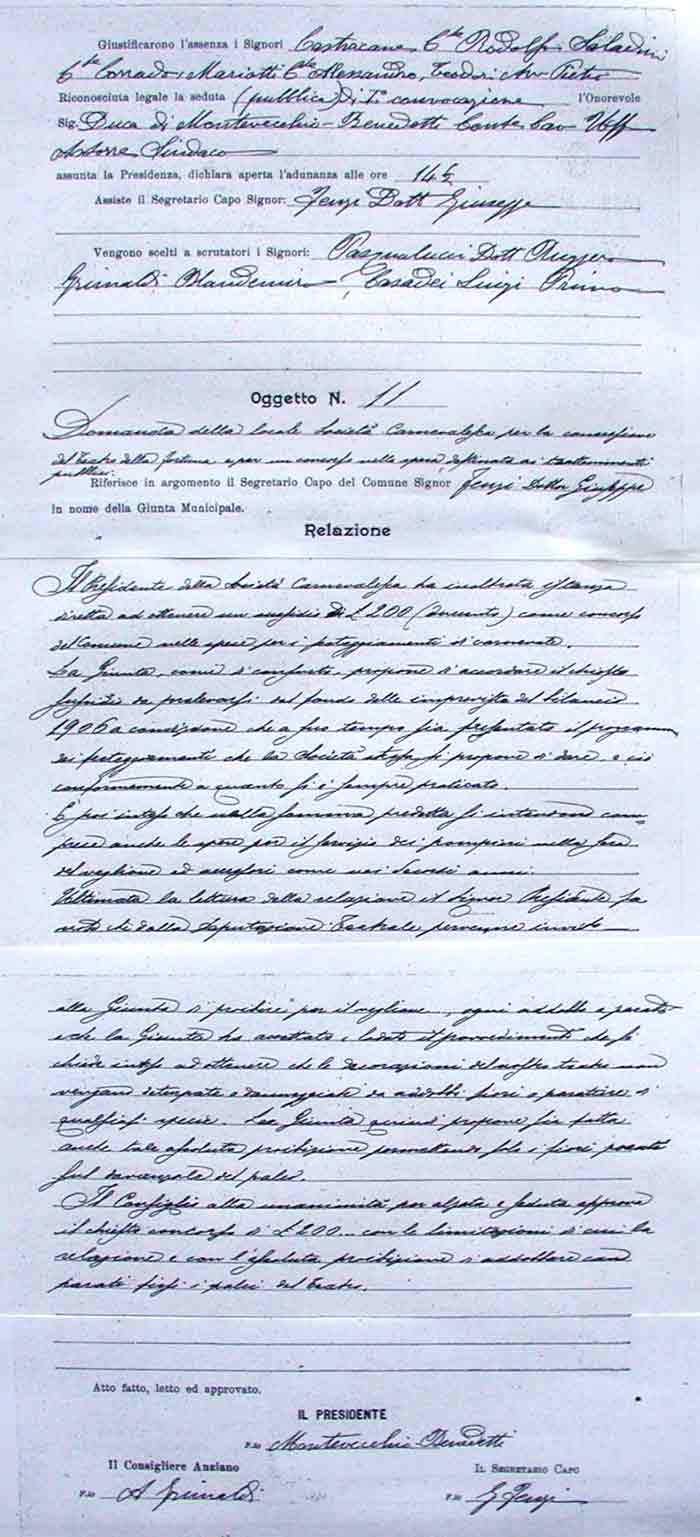 Giustificarono l'assenza i Signori Castracane Cte Rodolfo, Saladini
Cte Corrado, Mariotti Cte Alessandro, Teodori Avv Pietro
Riconosciuta legale la seduta (pubblica) di Iª convocazione l'Onorevole
Sig. Duca di Montevecchio-Benedetti Conte Cav Uff
Astorre Sindaco
assunta la Presidenza, dichiara aperta l'adunanza alle ore 14
Assiste il Segretario Capo Signor: Dott Giuseppe
Vengono scelti a scrutatori i Signori: Pasqualucci Dott Ruggero
Grimaldi Blandemiro, Casadei Luigi Primo
Oggetto N. 11
Domanda della locale Società Carnevalesca per la concessione
del Teatro della Fortuna e per un concorso nelle spese destinate ai trattenimenti
pubblici.
Riferisce in argomento il Segretario Capo del Comune Signor Dottor Giuseppe
in nome della Giunta Municipale.
Relazione
Il Presidente della Società Carnevalesca ha inoltrata istanza
diretta ad ottenere un sussidio di £ 200 (duecento) come concorso
del Comune nelle spese per i festeggiamenti di carnevale.
La Giunta, come di consueto, propone di accordare il chiesto
sussidio da prelevarsi dal fondo delle impreviste del bilancio
1906 a condizione che a suo tempo sia presentato il programma
dei festeggiamenti che la Società stessa si propone di dare, e ciò
conformemente a quanto si è sempre praticato.
È poi inteso che nella somma predetta si intendono com=
prese anche le spese per il servizio dei pompieri nella sera
del veglione ed accessori come nei decorsi anni.
Ultimata la lettura della relazione il Signor Presidente fa
noto che dalla Deputazione Teatrale pervenne invito
alla Giunta di proibire per il veglione, ogni addobbo e parato
e che la Giunta ha accettato e lodato il provvedimento che si
chiede inteso ad ottenere che le decorazioni del nostro teatro non
vengano deturpate o danneggiate da addobbi fiori o parature di
qualsiasi specie. La Giunta quindi propone sia fatta
anche tale assoluta proibizione permettendo solo i fiori
sul davanzale dei palchi.
Il Consiglio alla unanimità per alzata e seduta approva
il chiesto concorso di £ 200 con le limitazioni di cui la
relazione e con l'assoluta proibizione di addobbare con
parati fissi i palchi del Teatro.
Atto fatto, letto ed approvato.
IL PRESIDENTE
F.to Montevecchio Benedetti
Il Consigliere Anziano
IL SEGRETARIO CAPO
F.to A Grimaldi
F.to G